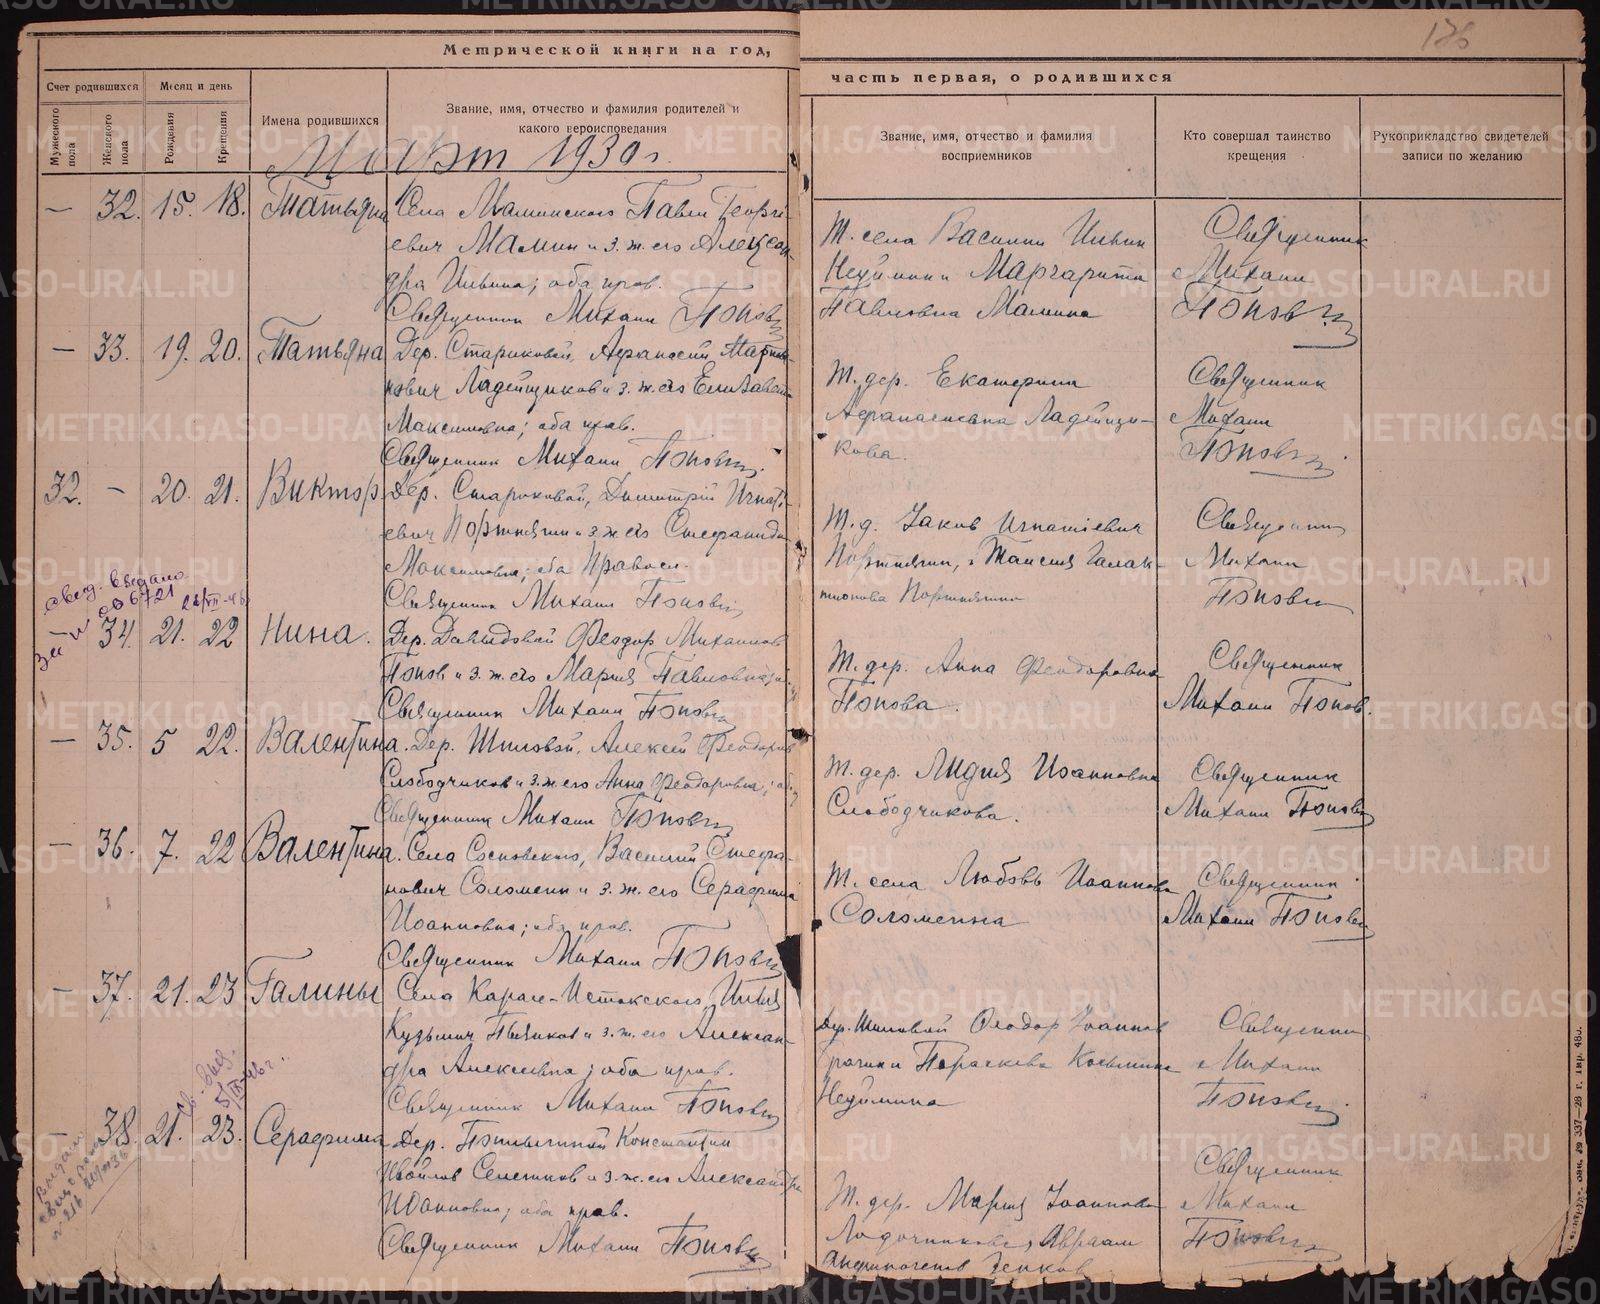 Метрической книги на год,
часть первая, о родившихся
126
Счет родившихся
Месяц и день
Мужеского пола
Женского пола
Рождения
Крещения
Имена родившихся
Звание, имя, отчество и фамилия родителей и
какого вероисповедания
Звание, имя, отчество и фамилия
восприемников
Кто совершал таинство
крещения
Рукоприкладство свидетелей
записи по желанию
Март 1930 г.
— 32. 15. 18. Татьяна
Села Маминского Павел Георги-
евич Мамин и з. ж. его Алексан-
дра Ильина; оба прав.
Священник Михаил Попов
Т. села Василий Ильин
и Маргарита
Павловна Мамина
Священник
Михаил
Попов
— 33. 19. 20. Татьяна
Дер. Стариковой, Афанасий Марты-
нович Ладейщиков и з. ж. его Елизавета
Максимовна; оба прав.
Священник Михаил Попов
Т. дер. Екатерина
Афанасиевна Ладейщи-
кова.
Священник
Михаил
Попов
32. — 20. 21. Виктор
Дер. Стариковой, Димитрій Игнаті-
евич Портнягин и з. ж. его Стефанида
Максимовна; оба Правосл.
Священник Михаил Попов
Т. д. Іаков Игнатіевич
Портнягин, и Таисия Галак-
тионова Портнягина
Священник
Михаил
Попов
свид. выдано
34. 21. 22 Нина.
Дер. Давыдовой Феодор Михаилов
Попов и з. ж. его Мария Павловна;
Священник Михаил Попов
Т. дер. Анна Феодоровна
Попова.
Священник
Михаил Попов.
— 35. 5 22. Валентина.
Дер. Шиловой, Алексей Феодоров
Слободчиков и з. ж. его Анна Феодоровна;
Священник Михаил Попов
Т. дер. Лидия Иоанновна
Слободчикова.
Священник
Михаил Попов
— 36. 7. 22 Валентина.
Села Сосновского, Василий Стефа-
нович Соломеин и з. ж. его Серафима
Иоанновна; оба прав.
Священник Михаил Попов
Т. села Любовь Иоаннова
Соломеина
Священник
Михаил Попов
— 37. 21. 23 Галины
Села Караге-Истокского Илья
Кузьмич Пьянков и з. ж. его Алексан-
дра Алексеевна; оба прав.
Священник Михаил Попов
Дер. Шиловой Феодор Іоаннов
и Параскева Косьмина
Священник
Михаил
Попов
Св. выд.
— 38. 21. 23. Серафима
Дер. Константин
и з. ж. его Александра
Иоанновна; оба прав.
Священник Михаил Попов
Т. дер. Мария Іоаннова
Лодочникова, Авраам
Священник
Михаил
Попов
Выдан
METRIKI.GASO-URAL.RU